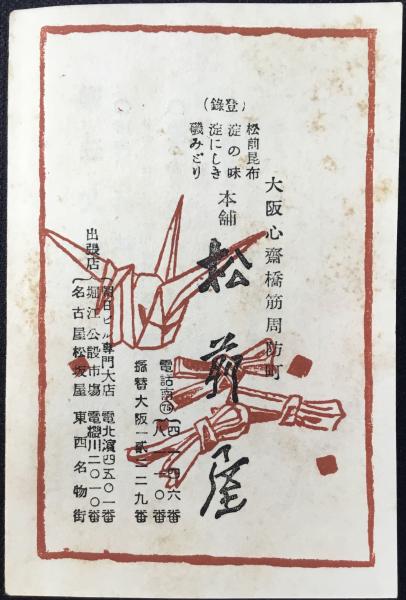 大阪心齋橋筋周防町
(登錄)
松前昆布
淀の味
淀にしき
磯みどり
本舗
松前屋
電話南(75)一四一四六番
八一一〇番
振替大阪一貳三二九番
出張店
朝日ビル専門大店 電北濱四五〇一番
堀江公設市場 電櫻川二〇一〇番
名古屋松坂屋 東西名物街